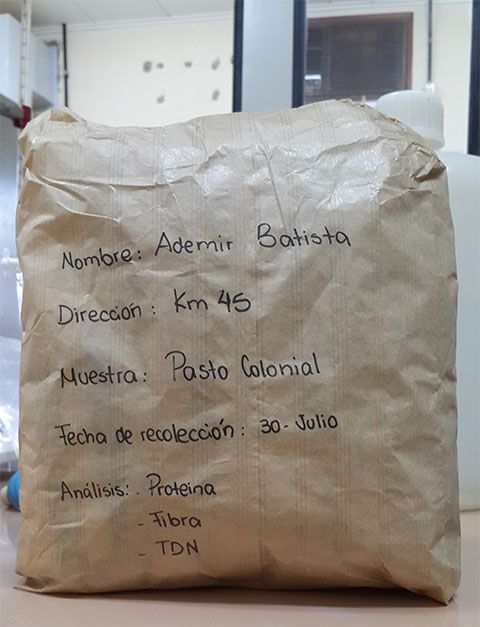 Nombre: Ademir Batista
Dirección: Km 45
Muestra: Pasto Colonial
Fecha de recolección: 30-Julio
Análisis: . Proteina
- Fibra
- TDN